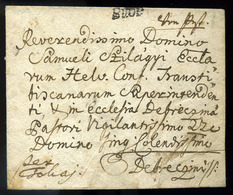 Reverendissimo Domino
Samueli Szilágyi Eccla
rum Helv. Conf. Transti
tiscanarum Superinten
denti & in ecclesia Debrecina
Pastori Vigilantissimo
Domino Colendissimo
per
Tokaj
Debreczini